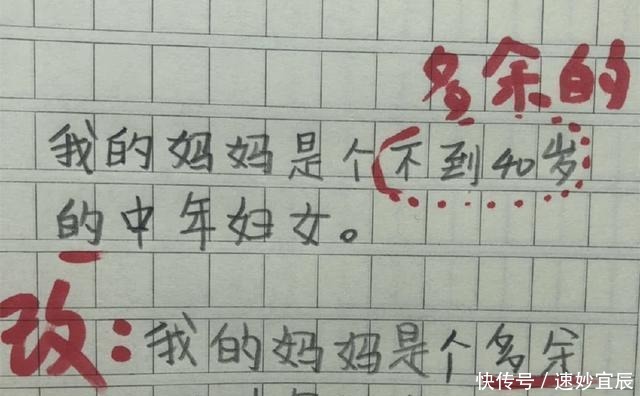 多余的
我的妈妈是个不到40岁
的中年妇女。
改：我的妈妈是个多余
快传号／速妙宜辰